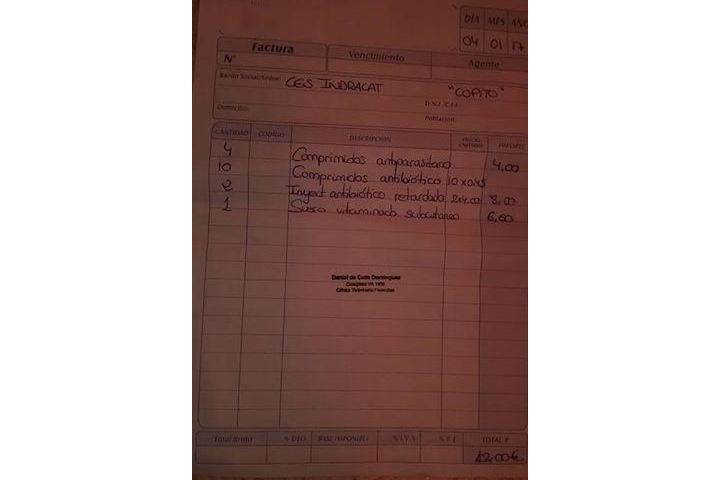 DÍA MES AÑO
04 01 17
Factura
Nº
Vencimiento
Agente
Razón Social/Señor:
CES INDRACAT
"COPITO"
D.N.I./C.I.F.
Domicilio:
Población:
CANTIDAD CÓDIGO DESCRIPCIÓN PRECIO UNITARIO IMPORTE
4 Comprimidos antiparasitario 4,00
10 Comprimidos antibiótico 10x0.45
2 Inyect antibiótico retardada 2x4.00 8,00
1 Suero vitaminado subcutaneo 6,60
Daniel de Domínguez
Colegiado
Clínica Veterinaria
Total Bruto % DTO. BASE IMPONIBLE % I.V.A. % R.E. TOTAL €
42,00€